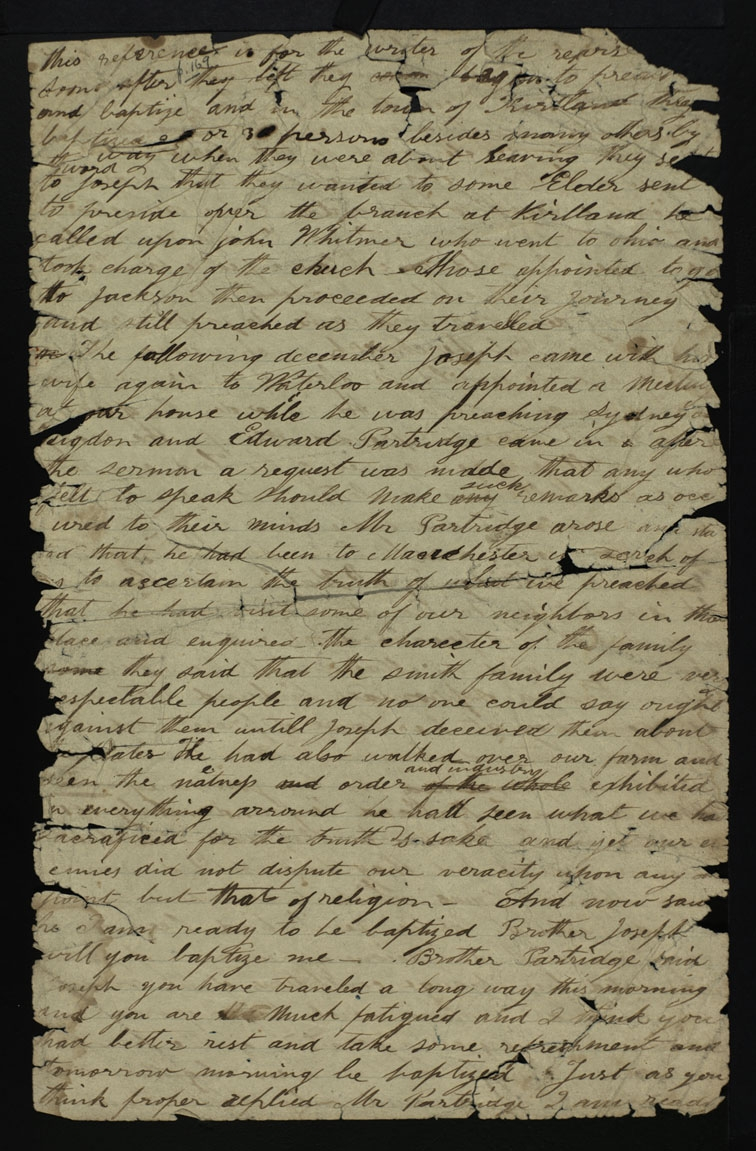 this reference is for the writer of the
p. 169
Some after they left they soon began to preach
and baptize and in the town of Kirtland they
baptized or 30 persons besides many others by
the way when they were about leaving they sent
word
to Joseph that they wanted to some Elder sent
to preside over the branch at Kirtland he
called upon john Whitmer who went to ohio and
took charge of the chuch those appointed to go
to Jackson then proceeded on their Journey
and still preached as they traveled
The following december Joseph came with his
wife again to Waterloo and appointed a Meeting
at our house while he was preaching Sydney
Rigdon and Edward Partridge came in & after
the sermon a request was made that any who
such
felt to speak should make any remarks as occ
ured to their minds Mr Partridge arose and sta
ed that he had been to Manchester in serch of
to ascertain the truth of what we preached
that he had visit some of our neighbors in tha
place and enquired the charecter of the family
some they said that the smith family were very
respectable people and no one could say ought
against them untill Joseph deceived them about
the plates He had also walked over our farm and
and industry
seen the natness and order of the whole exhibited
in everything arround he hatt seen what we had
sacraficed for the truth's sake and yet our en
emies did not dispute our veracity upon any
point but that of religion — And now said
he I am ready to be baptized Brother Joseph
will you baptize me — Brother Partridge said
Joseph you have traveled a long way this morning
and you are Much fatigued and I think you
had better rest and take some refreshment and
tomorrow morning be baptized Just as you
think proper replied Mr Partridge I am ready